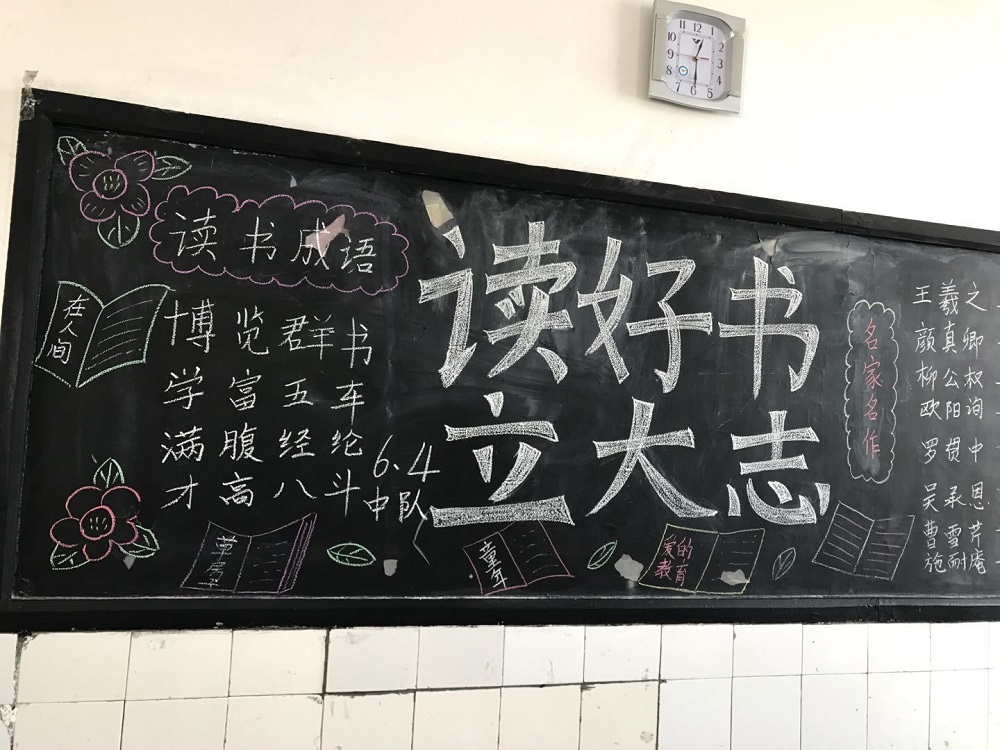 读书成语
在人间
博览群书
学富五车
满腹经纶
才高八斗
6.4
中队
读好书
立大志
童年
爱的
教育
名家名作
王羲之
颜真卿
柳公权
欧阳询
罗贯中
吴承恩
曹雪芹
施耐庵
11 12 1
10 2
9 3
8 4
7 6 5